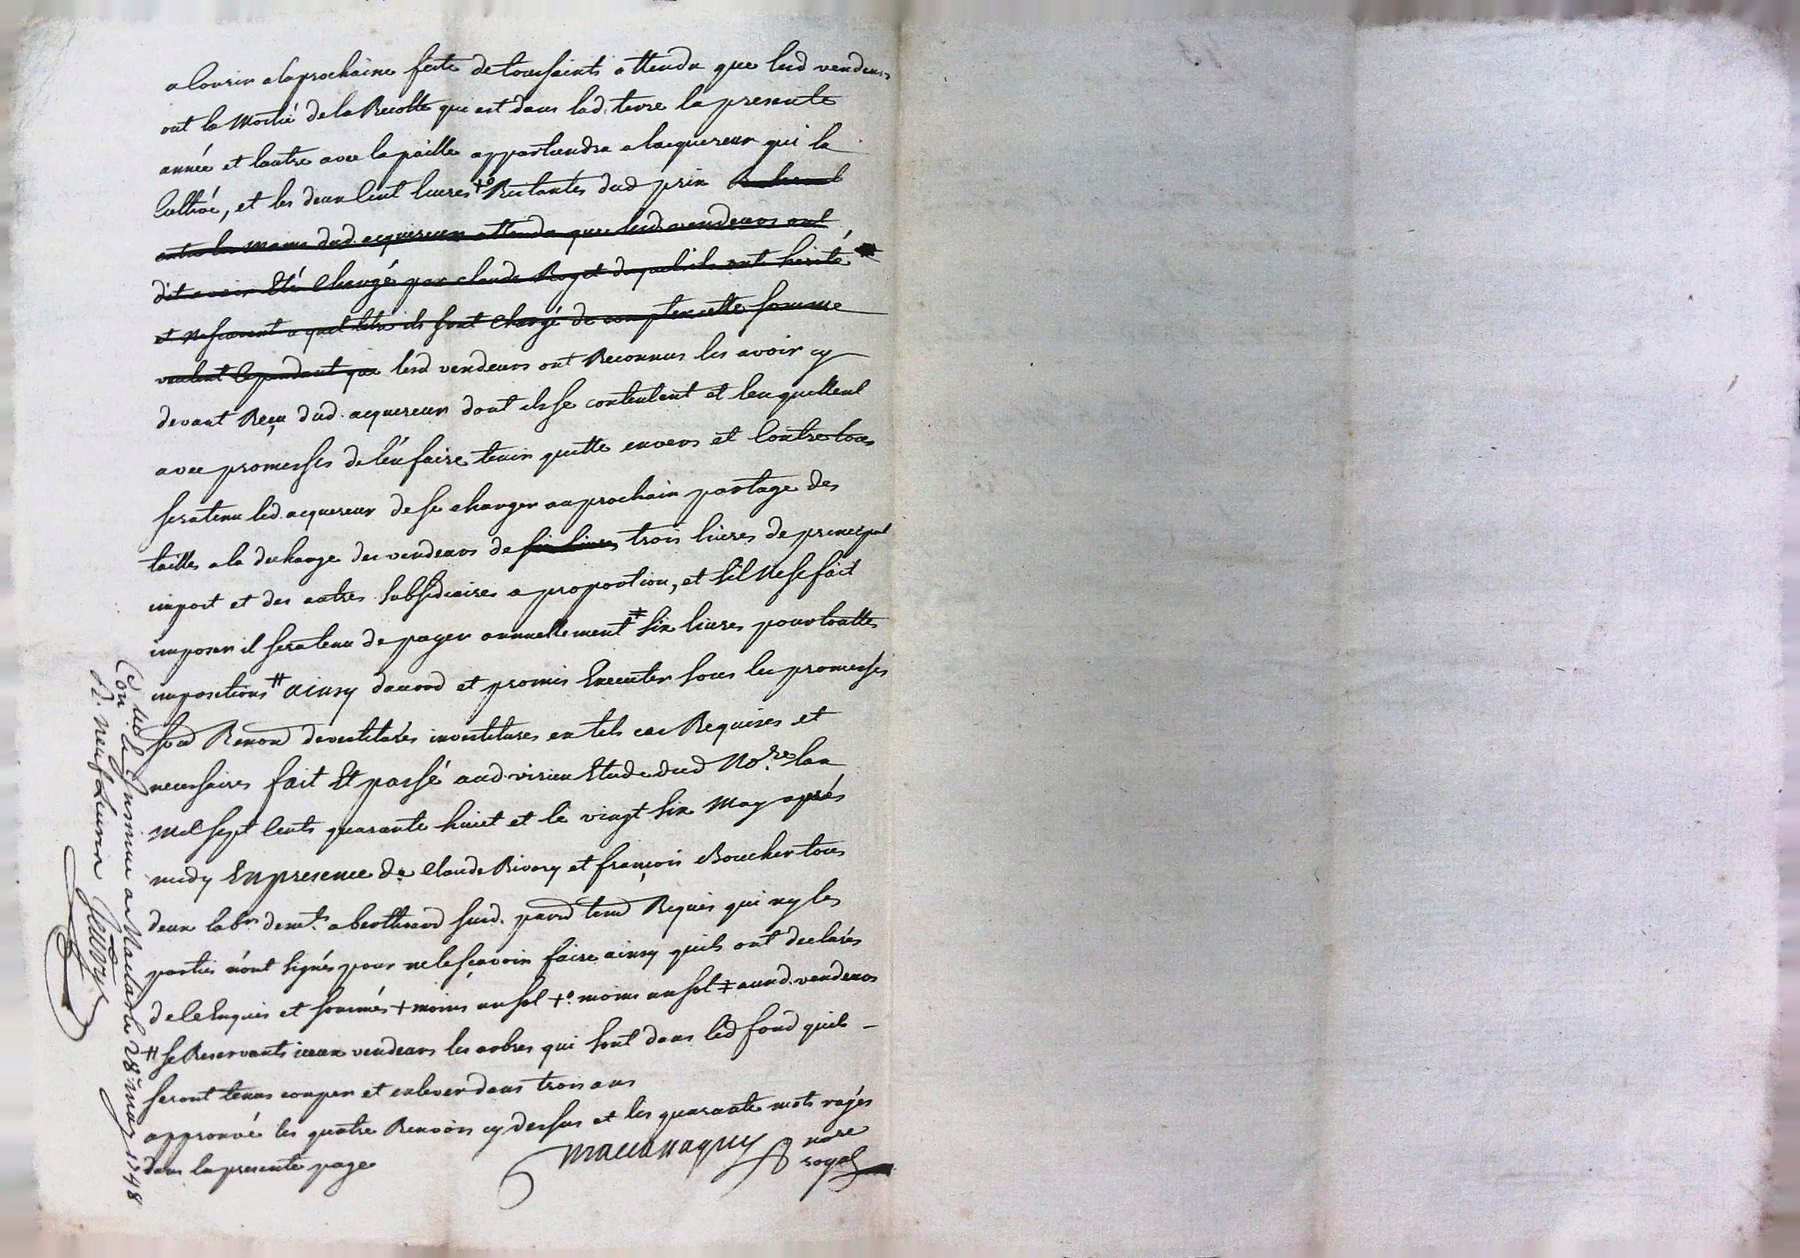 a courir a la prochaine feste de toussaints attendu que lesd vendeurs
ont la moitié de la Recolte qui est dans lad. terre la presente
année et lautre avec la paille appartiendra a lacquereur qui la
Cultivé, et les deux Cent livres +° Restantes dud prix
entre les mains dud acquereur attendu que lesd vendeurs ont
dit avoir Eté Chargés par claude Roget duquel ils ont herité
et a quel titre ils sont Chargé de compter cette somme
veulent Cependant que lesd vendeurs ont Reconnus les avoir cy
devant Reçu dud. acquereur dont ils se contentent et len quittent
avec promesses de len faire tenir quitte envers et Contre tous
sera tenu led. acquereur de se charger au prochain partage des
tailles a la decharge des vendeurs de six livres trois livres de principal
impost et des autres Subsidiaires a proportion, et Sil Ne se fait
imposer il sera tenu de payer annuellement ‡ Six livres pour touttes
impositions # ainsy dacord et promis Executer sous les promesses
devestitures investitures en tels cas Requises et
necessaires fait Et passé aud. virieu Etude dud No.re lan
Mil sept Cents quarante huict et le vingt Six May aprés
midy En presence de Claude Rivory et françois Boucher tous
deux lab.rs dem.ts a berthenod Requis qui ny les
parties n'ont signés pour ne le sçavoir faire ainsy quils ont declarés
de ce Enquis et sommés + moins un sol +° moins un sol ‡ auxd. vendeurs
# se Reservants iceux vendeurs les arbres qui sont dans led fond quils
seront tenus couper et enlever dans trois ans
approuvé les quatre Renvois cy dessus et les quarante mots rayés
dans la presente page
no.re
royal
Con.lé & Insinué a le 28e may 1748
R. neuf livres